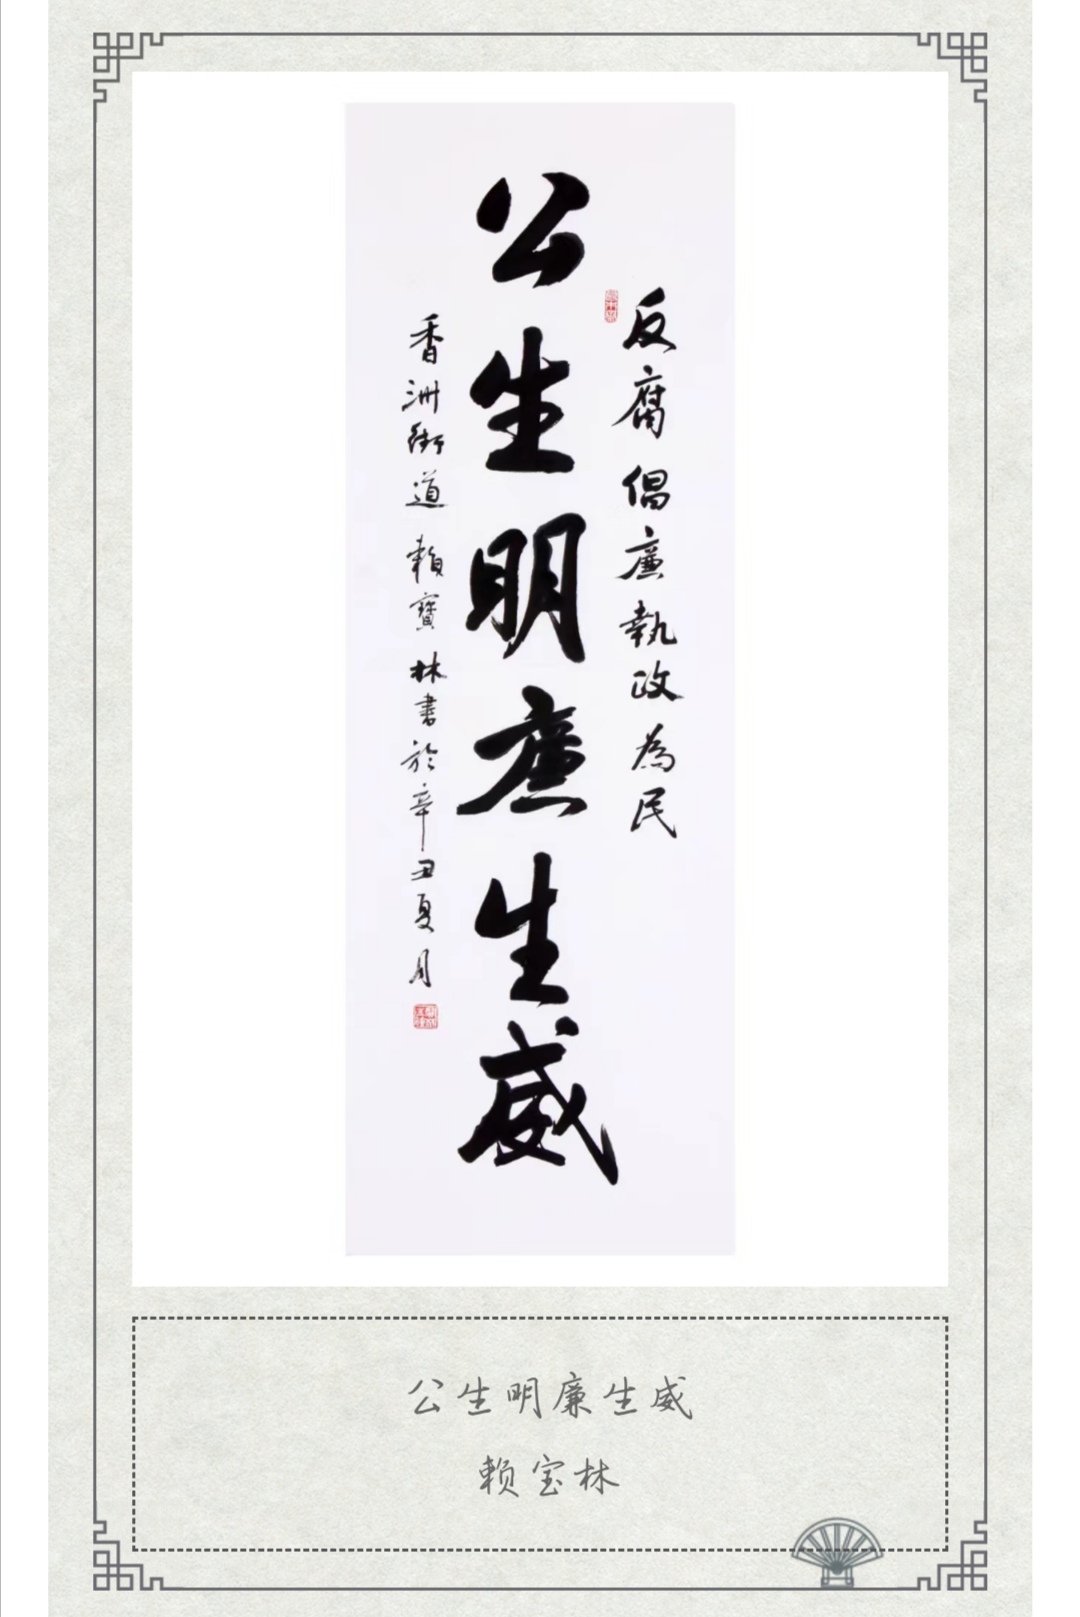 反腐倡廉執政為民
公生明廉生威
香洲街道賴寶林書於辛丑夏月
公生明廉生威
赖宝林